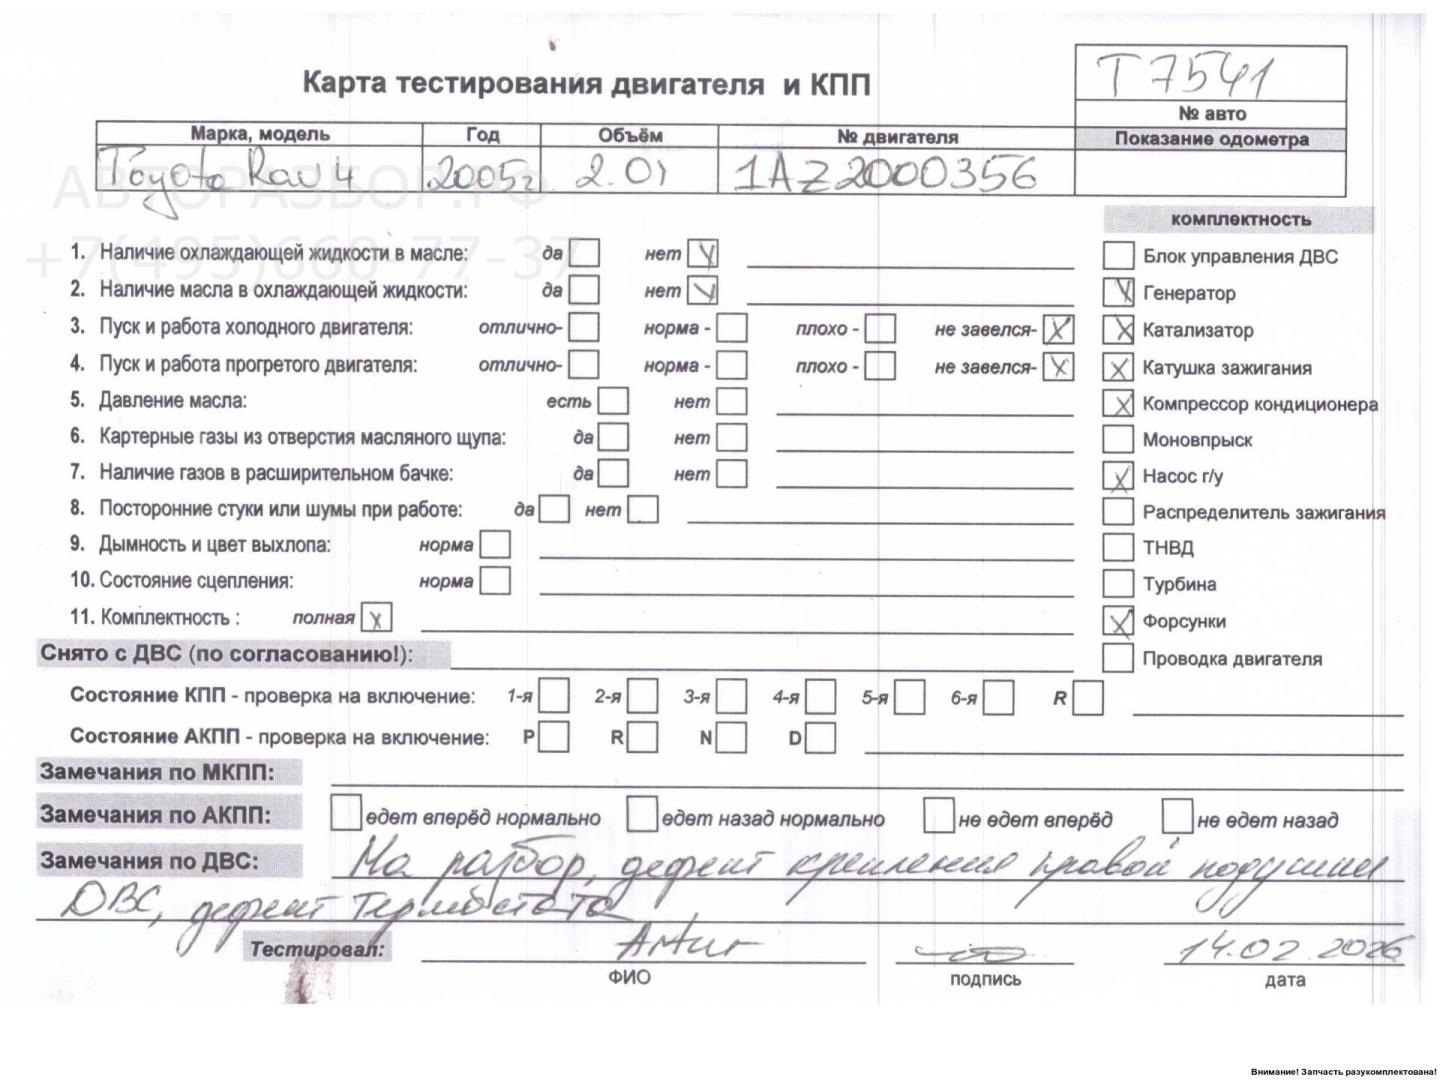 Т 7541
Карта тестирования двигателя и КПП
№ авто
Марка, модель Год Объём № двигателя Показание одометра
Toyota Rav 4 2005г 2.0i 1AZ2000356
АВТОРАЗБОР.РФ
+7(495)660-77-37
комплектность
1. Наличие охлаждающей жидкости в масле: да нет V
Блок управления ДВС
2. Наличие масла в охлаждающей жидкости: да нет V
V Генератор
3. Пуск и работа холодного двигателя: отлично- норма - плохо - не завелся- X
X Катализатор
4. Пуск и работа прогретого двигателя: отлично- норма - плохо - не завелся- X
X Катушка зажигания
5. Давление масла: есть нет
X Компрессор кондиционера
6. Картерные газы из отверстия масляного щупа: да нет
Моновпрыск
7. Наличие газов в расширительном бачке: да нет
X Насос г/у
8. Посторонние стуки или шумы при работе: да нет
Распределитель зажигания
9. Дымность и цвет выхлопа: норма
ТНВД
10. Состояние сцепления: норма
Турбина
11. Комплектность : полная X
X Форсунки
Снято с ДВС (по согласованию!):
Проводка двигателя
Состояние КПП - проверка на включение: 1-я 2-я 3-я 4-я 5-я 6-я R
Состояние АКПП - проверка на включение: P R N D
Замечания по МКПП:
Замечания по АКПП: едет вперёд нормально едет назад нормально не едет вперёд не едет назад
Замечания по ДВС: На разбор, дефект крепления правой подушки
ДВС, дефект термостата
Тестировал: 14.02.2026
ФИО подпись дата
Внимание! Запчасть разукомплектована!